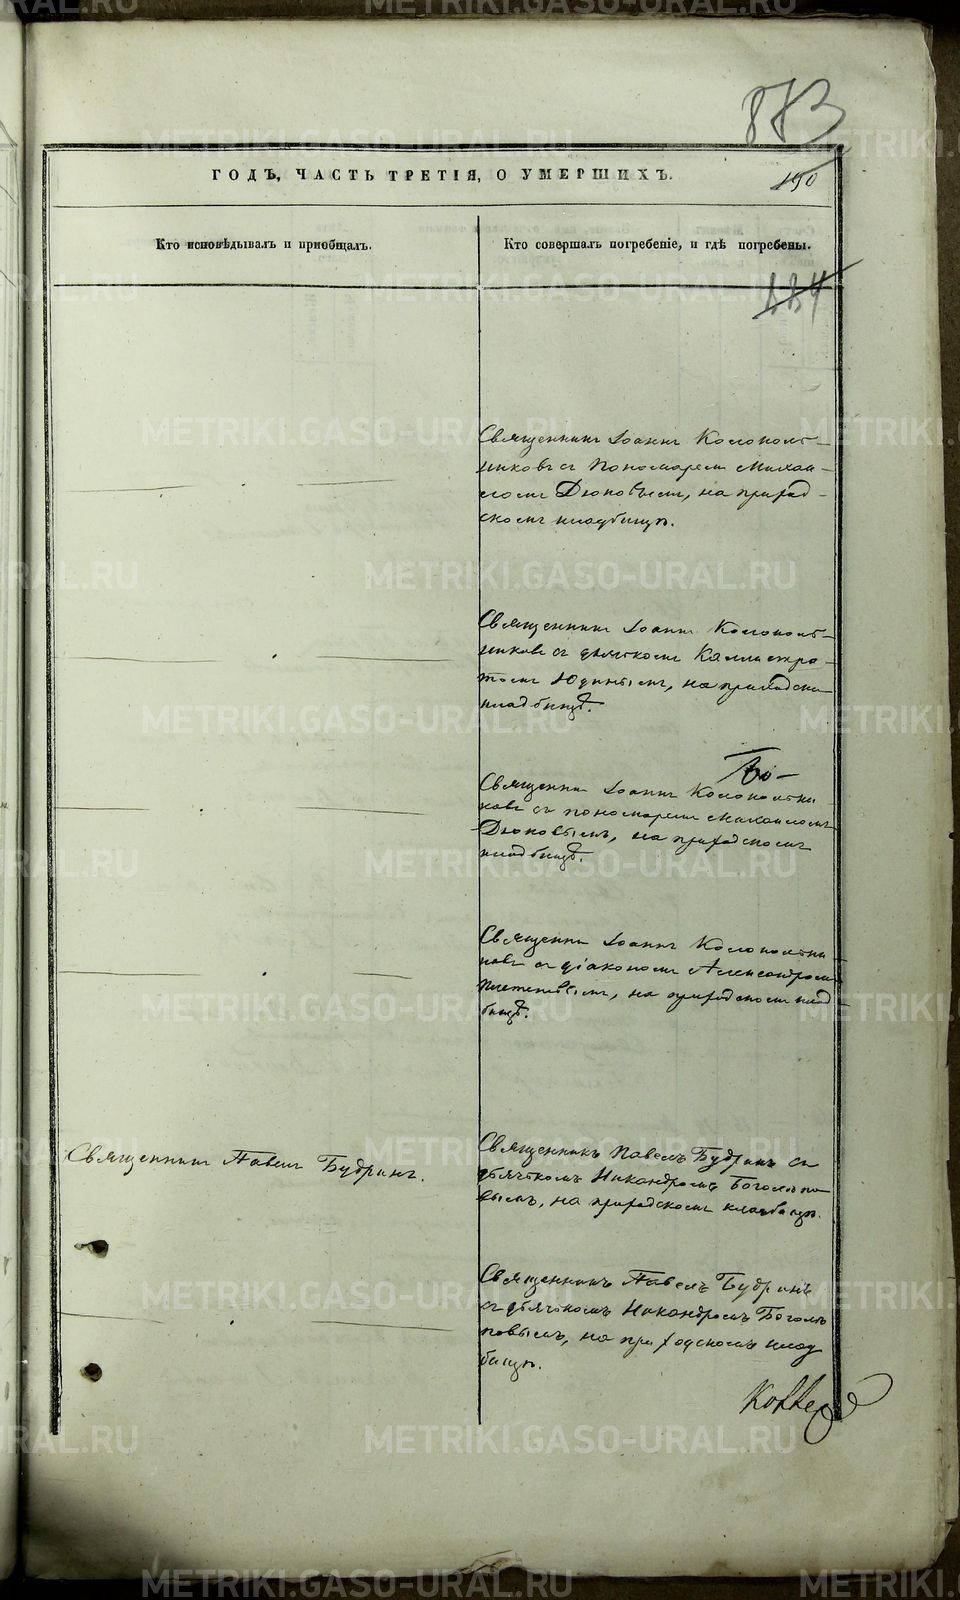 873
ГОДЪ, ЧАСТЬ ТРЕТІЯ, О УМЕРШИХЪ.
190
Кто исповѣдывалъ и пріобщалъ.
Кто совершалъ погребеніе, и гдѣ погребены.
Священникъ Іоаннъ Колокольт-
никовъ съ пономаремъ Михаи-
ломъ Дюковымъ, на приход-
скомъ кладбищѣ.
Священникъ Іоаннъ Колокольт-
никовъ съ дьячкомъ Каллистра-
томъ Юдинымъ, на приходскомъ
кладбищѣ.
Священникъ Іоаннъ Колокольтни-
ковъ съ пономаремъ Михаиломъ
Дюковымъ, на приходскомъ
кладбищѣ.
Священникъ Іоаннъ Колокольтни-
ковъ съ діакономъ Александромъ
на приходскомъ клад-
бищѣ.
Священникъ Павелъ Будринъ.
Священникъ Павелъ Будринъ съ
дьячкомъ Никандромъ Боголѣпо-
вымъ, на приходскомъ кладбищѣ.
Священникъ Павелъ Будринъ
съ дьячкомъ Никандромъ Боголѣ-
повымъ, на приходскомъ клад
бищѣ.
METRIKI.GASO-URAL.RU